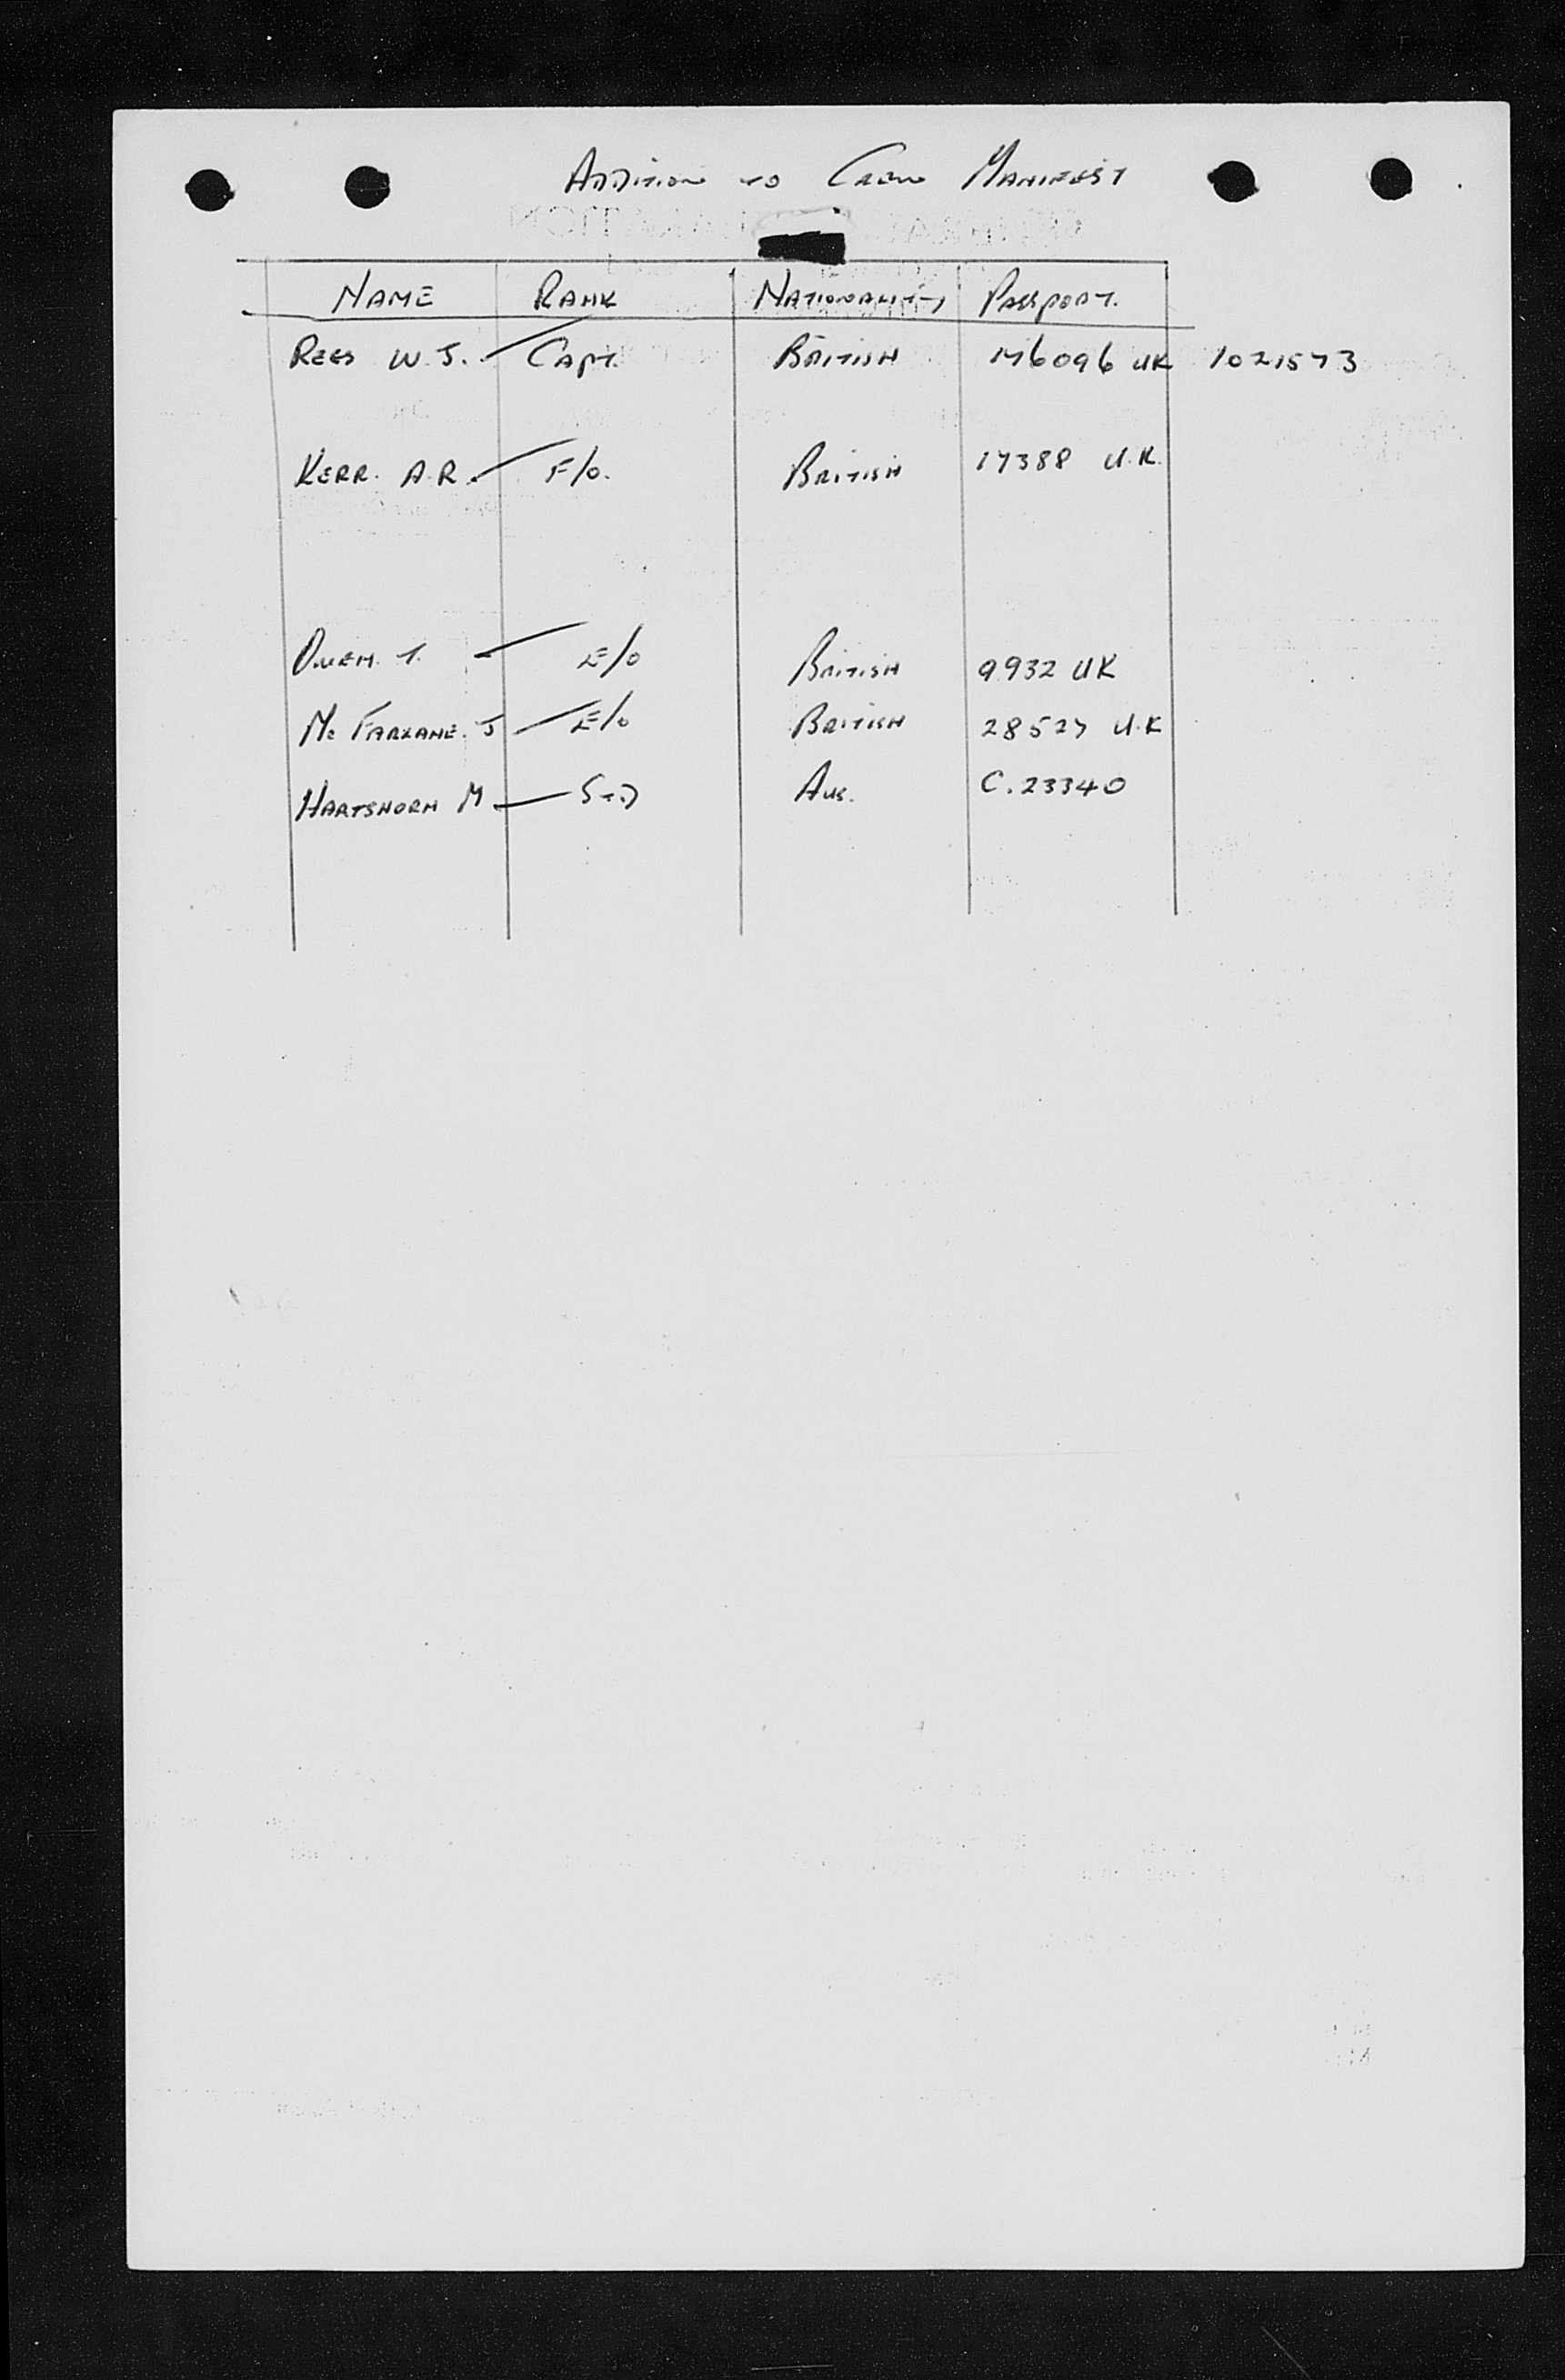 ADDITION TO CREW MANIFEST
NAME RANK NATIONALITY PASSPORT.
REES W.J. CAPT. BRITISH 176096 UK 1021573
KERR. A.R. F/O. BRITISH 17388 U.K.
OWEN. T. E/O BRITISH 9932 UK
Mc FARLANE. J E/O BRITISH 28527 U.K
HARTSHORN M STD AUS. C.23340